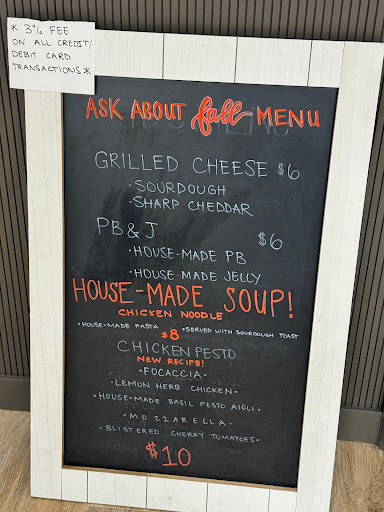 * 3% FEE
ON ALL CREDIT/
DEBIT CARD
TRANSACTIONS *
ASK ABOUT fall MENU
GRILLED CHEESE $6
· SOURDOUGH
· SHARP CHEDDAR
PB & J $6
· HOUSE-MADE PB
· HOUSE-MADE JELLY
HOUSE-MADE SOUP!
CHICKEN NOODLE
· HOUSE-MADE PASTA · SERVED WITH SOURDOUGH TOAST
$8
CHICKEN PESTO
NEW RECIPE!
· FOCACCIA ·
· LEMON HERB CHICKEN ·
· HOUSE-MADE BASIL PESTO AIOLI ·
· MOZZARELLA ·
· BLISTERED CHERRY TOMATOES ·
$10